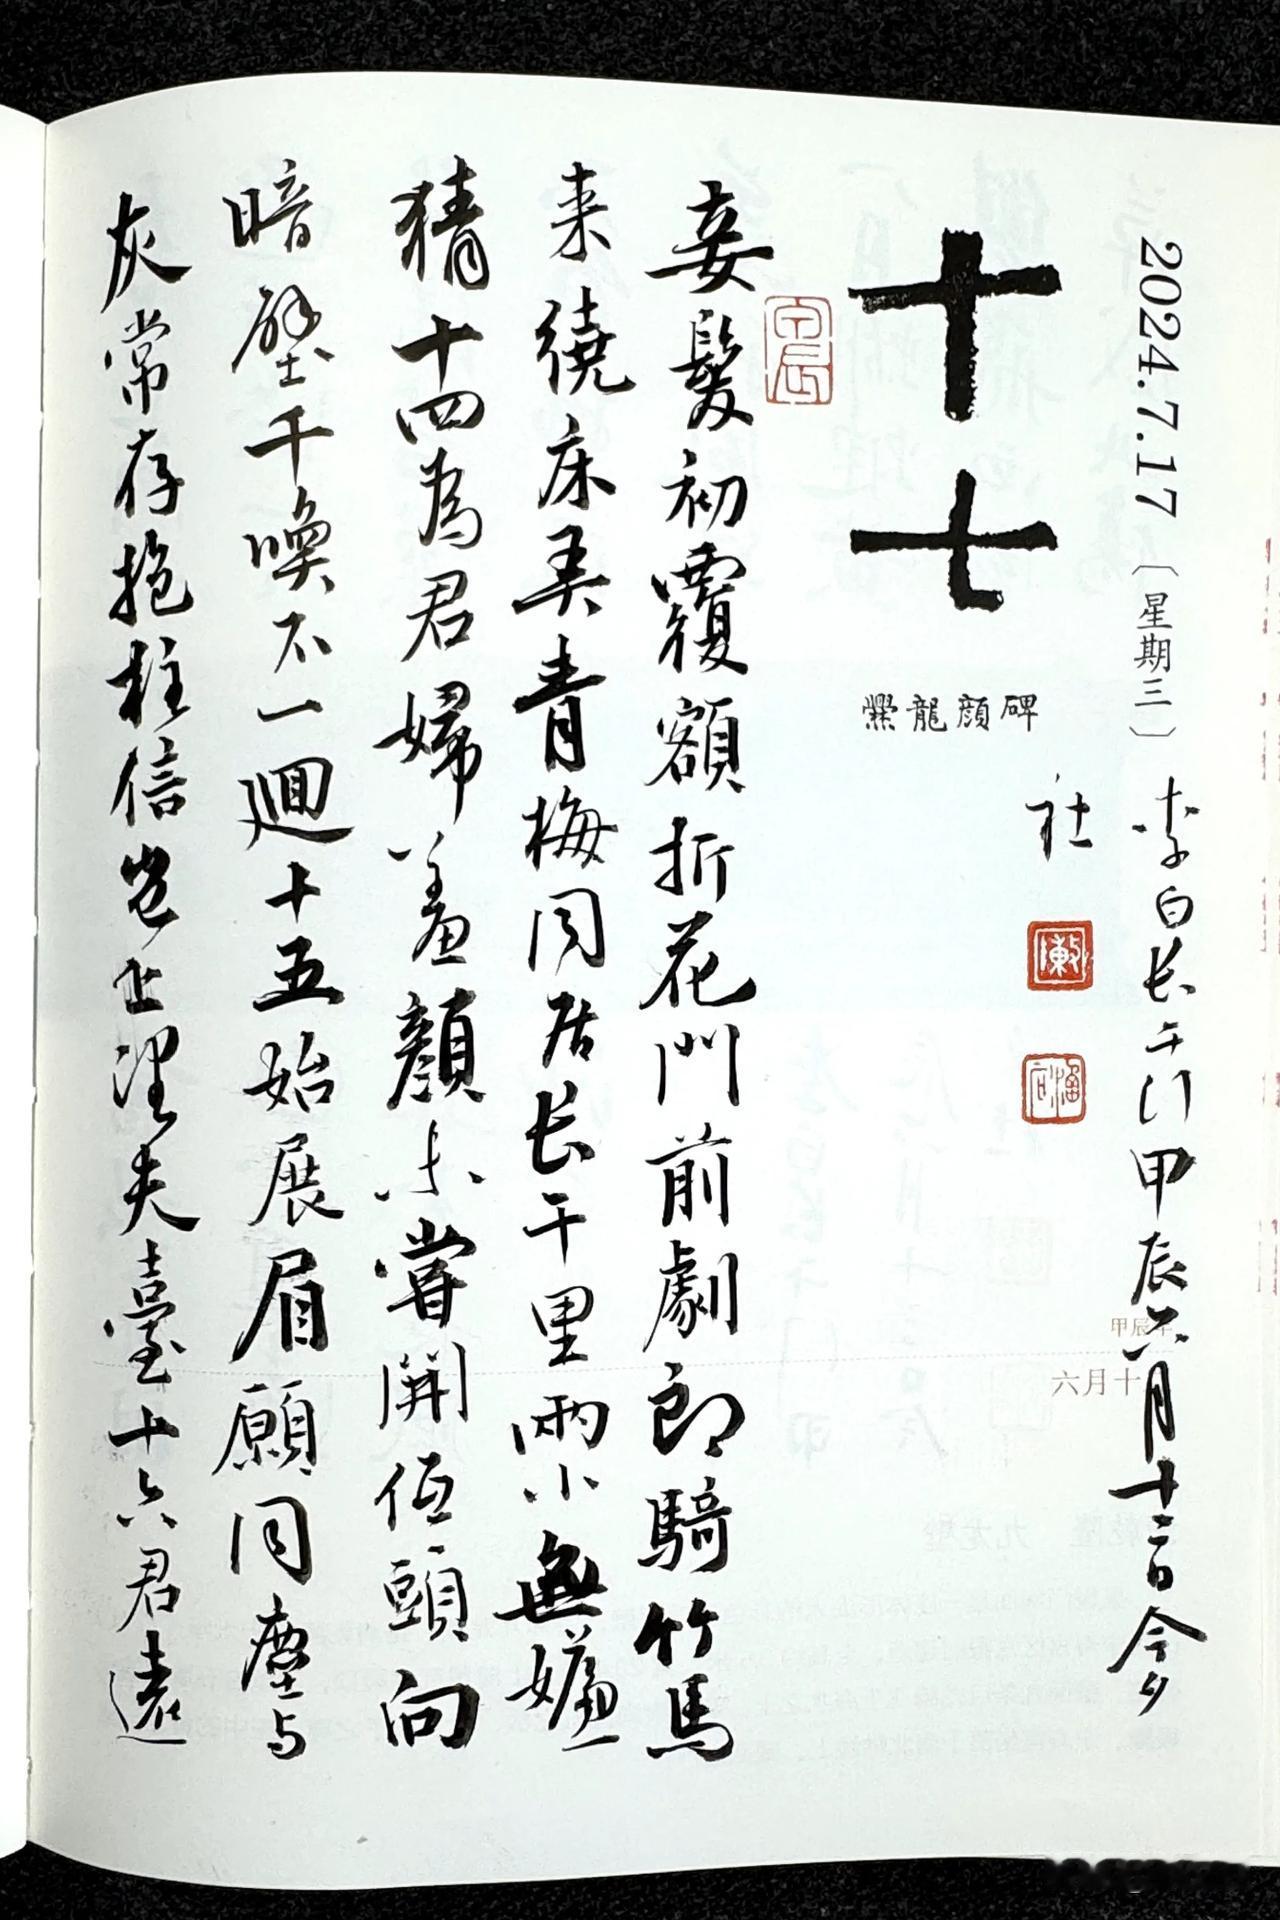 2024.7.17〔星期三〕
李白长干行甲辰六月十二日今夕
社
甲辰年
六月十
十七
爨龍顔碑
妾髮初覆額折花門前劇郎騎竹馬
来繞床弄青梅同居长干里兩小無嫌
猜十四為君婦羞顔未嘗開低頭向
暗壁千喚不一迴十五始展眉願同塵与
灰常存抱柱信豈上望夫臺十六君遠